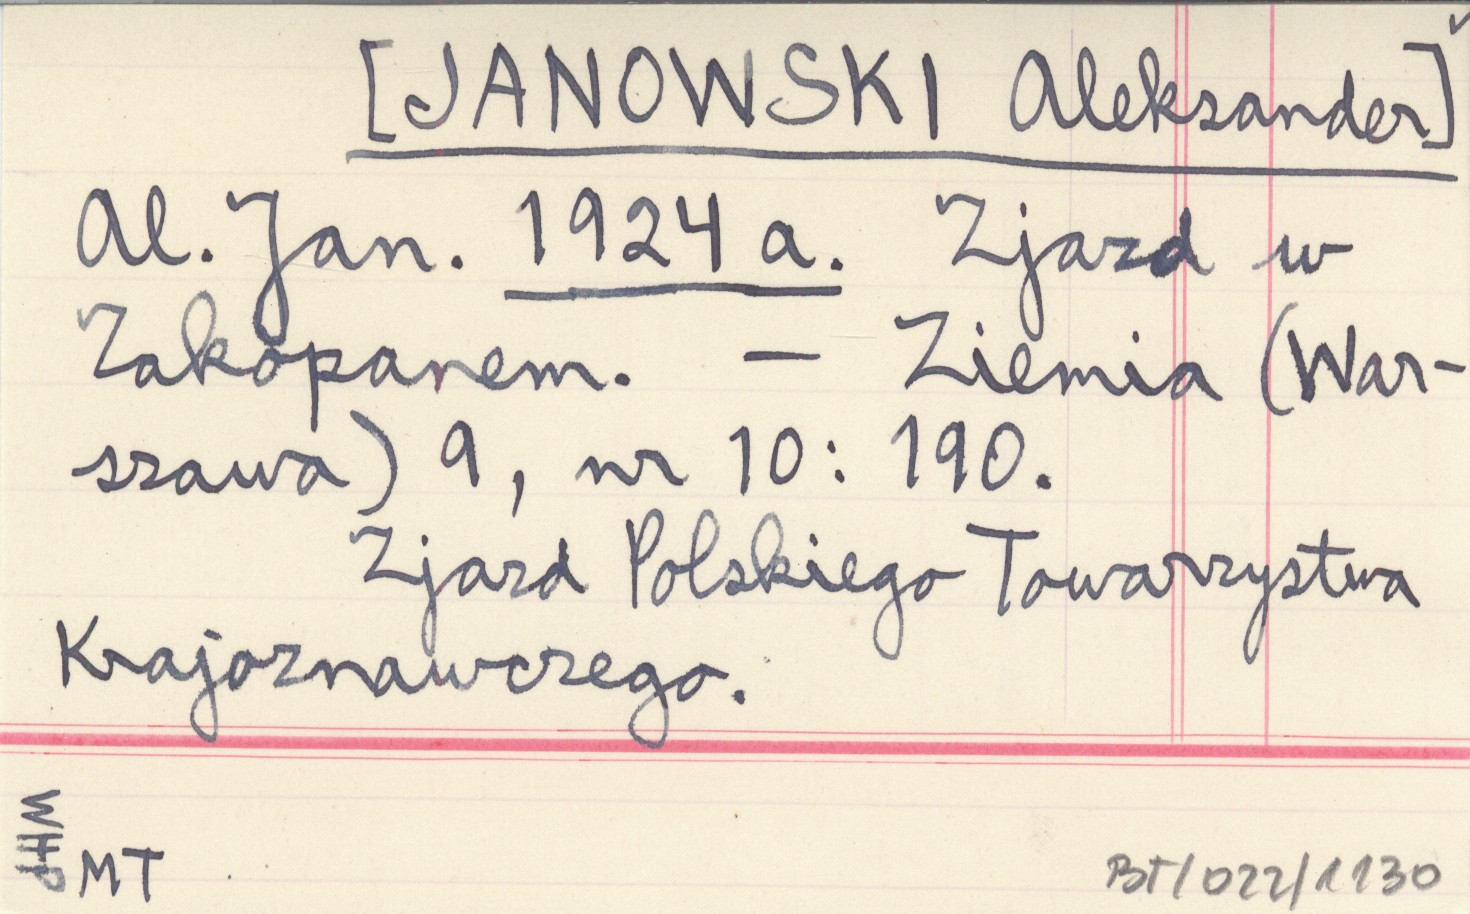 [JANOWSKI Aleksander]
Al. Jan. 1924 a. Zjazd w
Zakopanem. — Ziemia (War-
szawa) 9, nr 10: 190.
Zjazd Polskiego Towarzystwa
Krajoznawczego.
WHP
MT
BT/022/1130